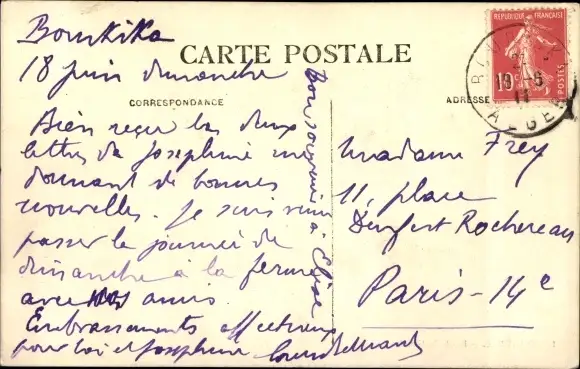 Bourkika
18 juin dimanche
CARTE POSTALE
CORRESPONDANCE
ADRESSE
RÉPUBLIQUE FRANÇAISE
10c
POSTES
ALGER
Bien reçu les deux
lettres de Josephine me
donnant de bonnes
nouvelles. Je suis venu
passer la journée de
dimanche à la ferme
avec amis.
Embrassements affectueux
pour toi et Josephine
Bon souvenir à Elise
Madame Frey
11, place
Denfert Rochereau
Paris-14e